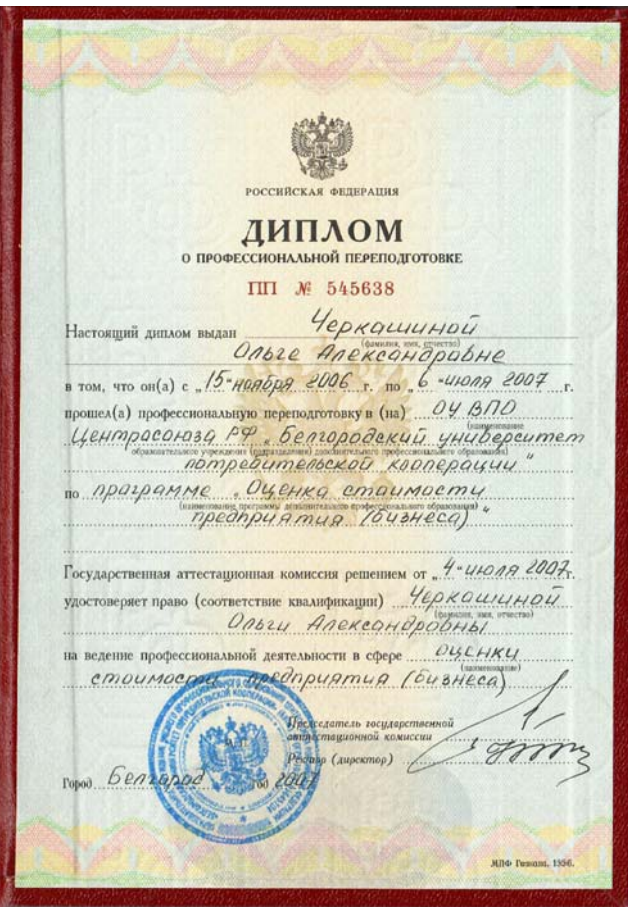 РОССИЙСКАЯ ФЕДЕРАЦИЯ
ДИПЛОМ
О ПРОФЕССИОНАЛЬНОЙ ПЕРЕПОДГОТОВКЕ
ПП № 545638
Настоящий диплом выдан Черкашиной
(фамилия, имя, отчество)
Ольге Александровне
в том, что он(а) с „15" ноября 2006 г. по „6" июля 2007 г.
прошел(а) профессиональную переподготовку в (на) ОУ ВПО
(наименование
Центросоюза РФ „Белгородский университет
образовательного учреждения (подразделения) дополнительного профессионального образования)
потребительской кооперации"
по программе „Оценка стоимости
(наименование программы дополнительного профессионального образования)
предприятия (бизнеса)"
Государственная аттестационная комиссия решением от „4" июля 2007 г.
удостоверяет право (соответствие квалификации) Черкашиной
(фамилия, имя, отчество)
Ольги Александровны
на ведение профессиональной деятельности в сфере оценки
(наименование)
стоимости предприятия (бизнеса)
Председатель государственной
аттестационной комиссии
Ректор (директор)
Город Белгород год 2007
МПФ Гознака. 1996.